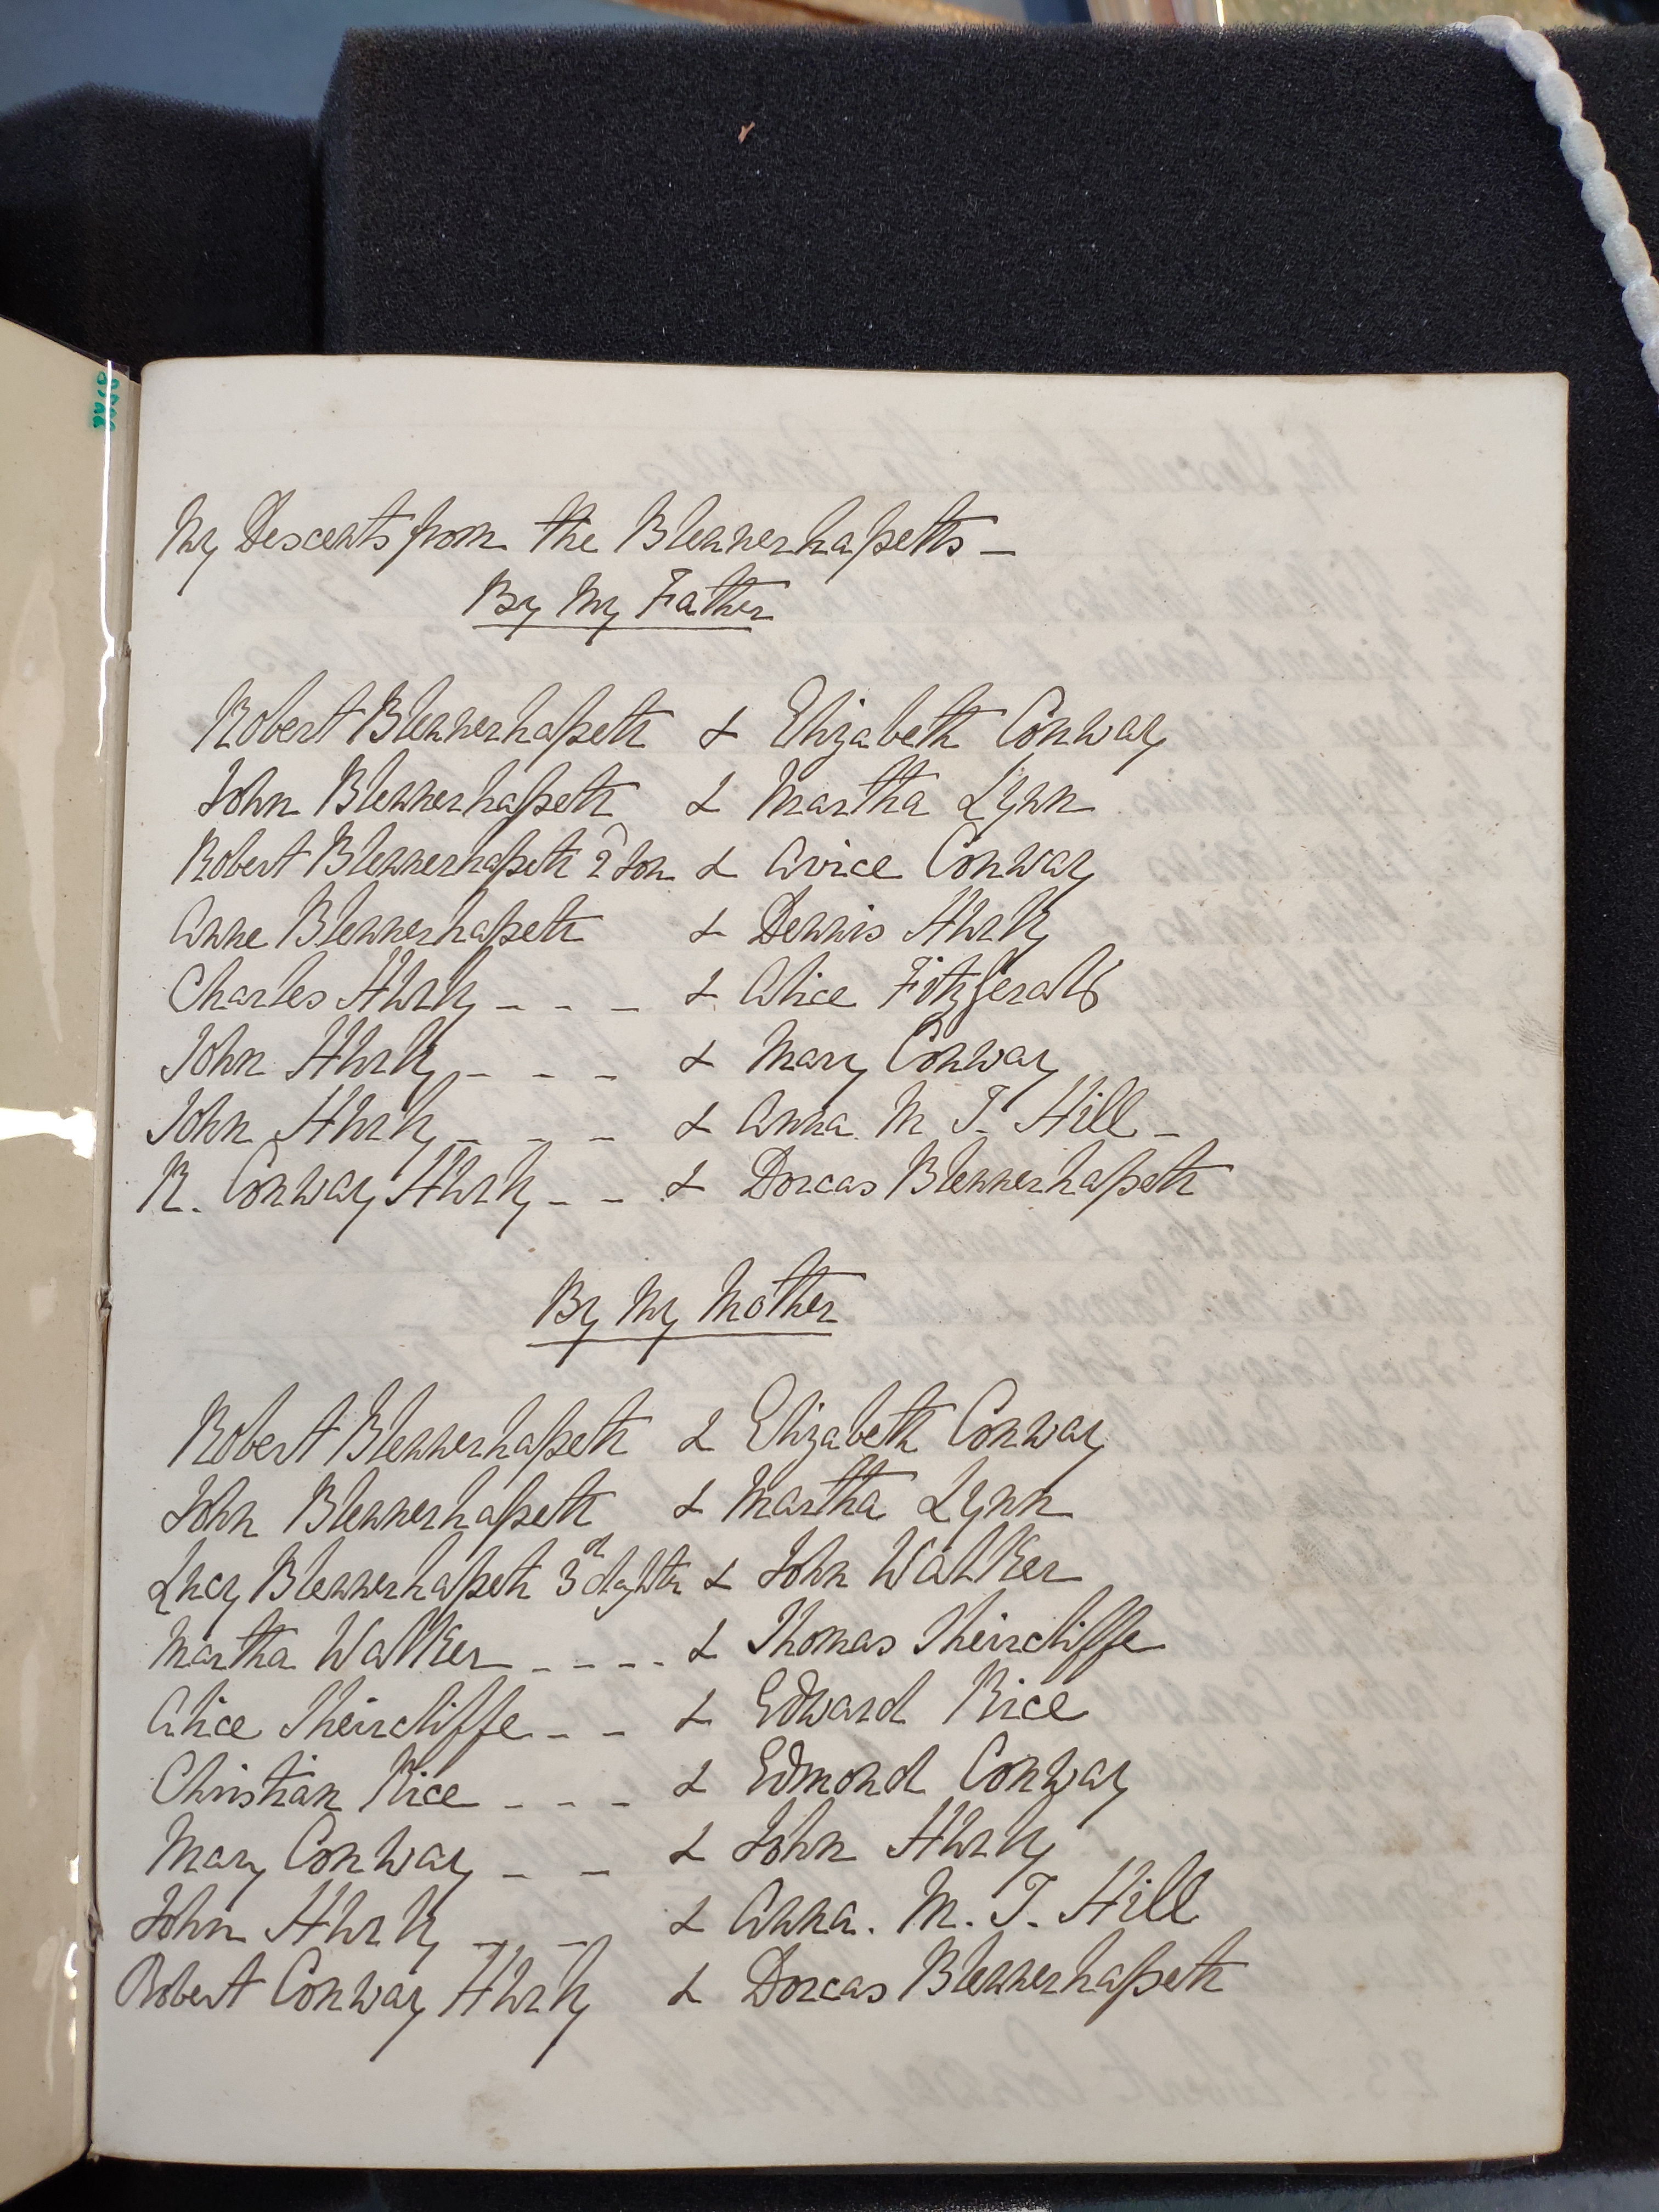 My Descents from the Blennerhassetts –
By My Father
Robert Blennerhassett & Elizabeth Conway
John Blennerhassett & Martha Lynn
Robert Blennerhassett 2 Son & Avice Conway
Anne Blennerhassett & Dennis Hurly
Charles Hurly - - - & Alice Fitzgerald
John Hurly - - - & Mary Conway
John Hurly - - - & Anna M T. Hill -
R. Conway Hurly - - & Dorcas Blennerhassett
By My Mother
Robert Blennerhassett & Elizabeth Conway
John Blennerhassett & Martha Lynn
Lucy Blennerhassett 3 & John Walker
Martha Walker - - - - & Thomas Heirscliffe
Alice Heirscliffe - - & Edward Rice
Christian Rice - - - & Edmond Conway
Mary Conway - - & John Hurly
John Hurly - - & Anna. M. T. Hill
Robert Conway Hurly & Dorcas Blennerhassett